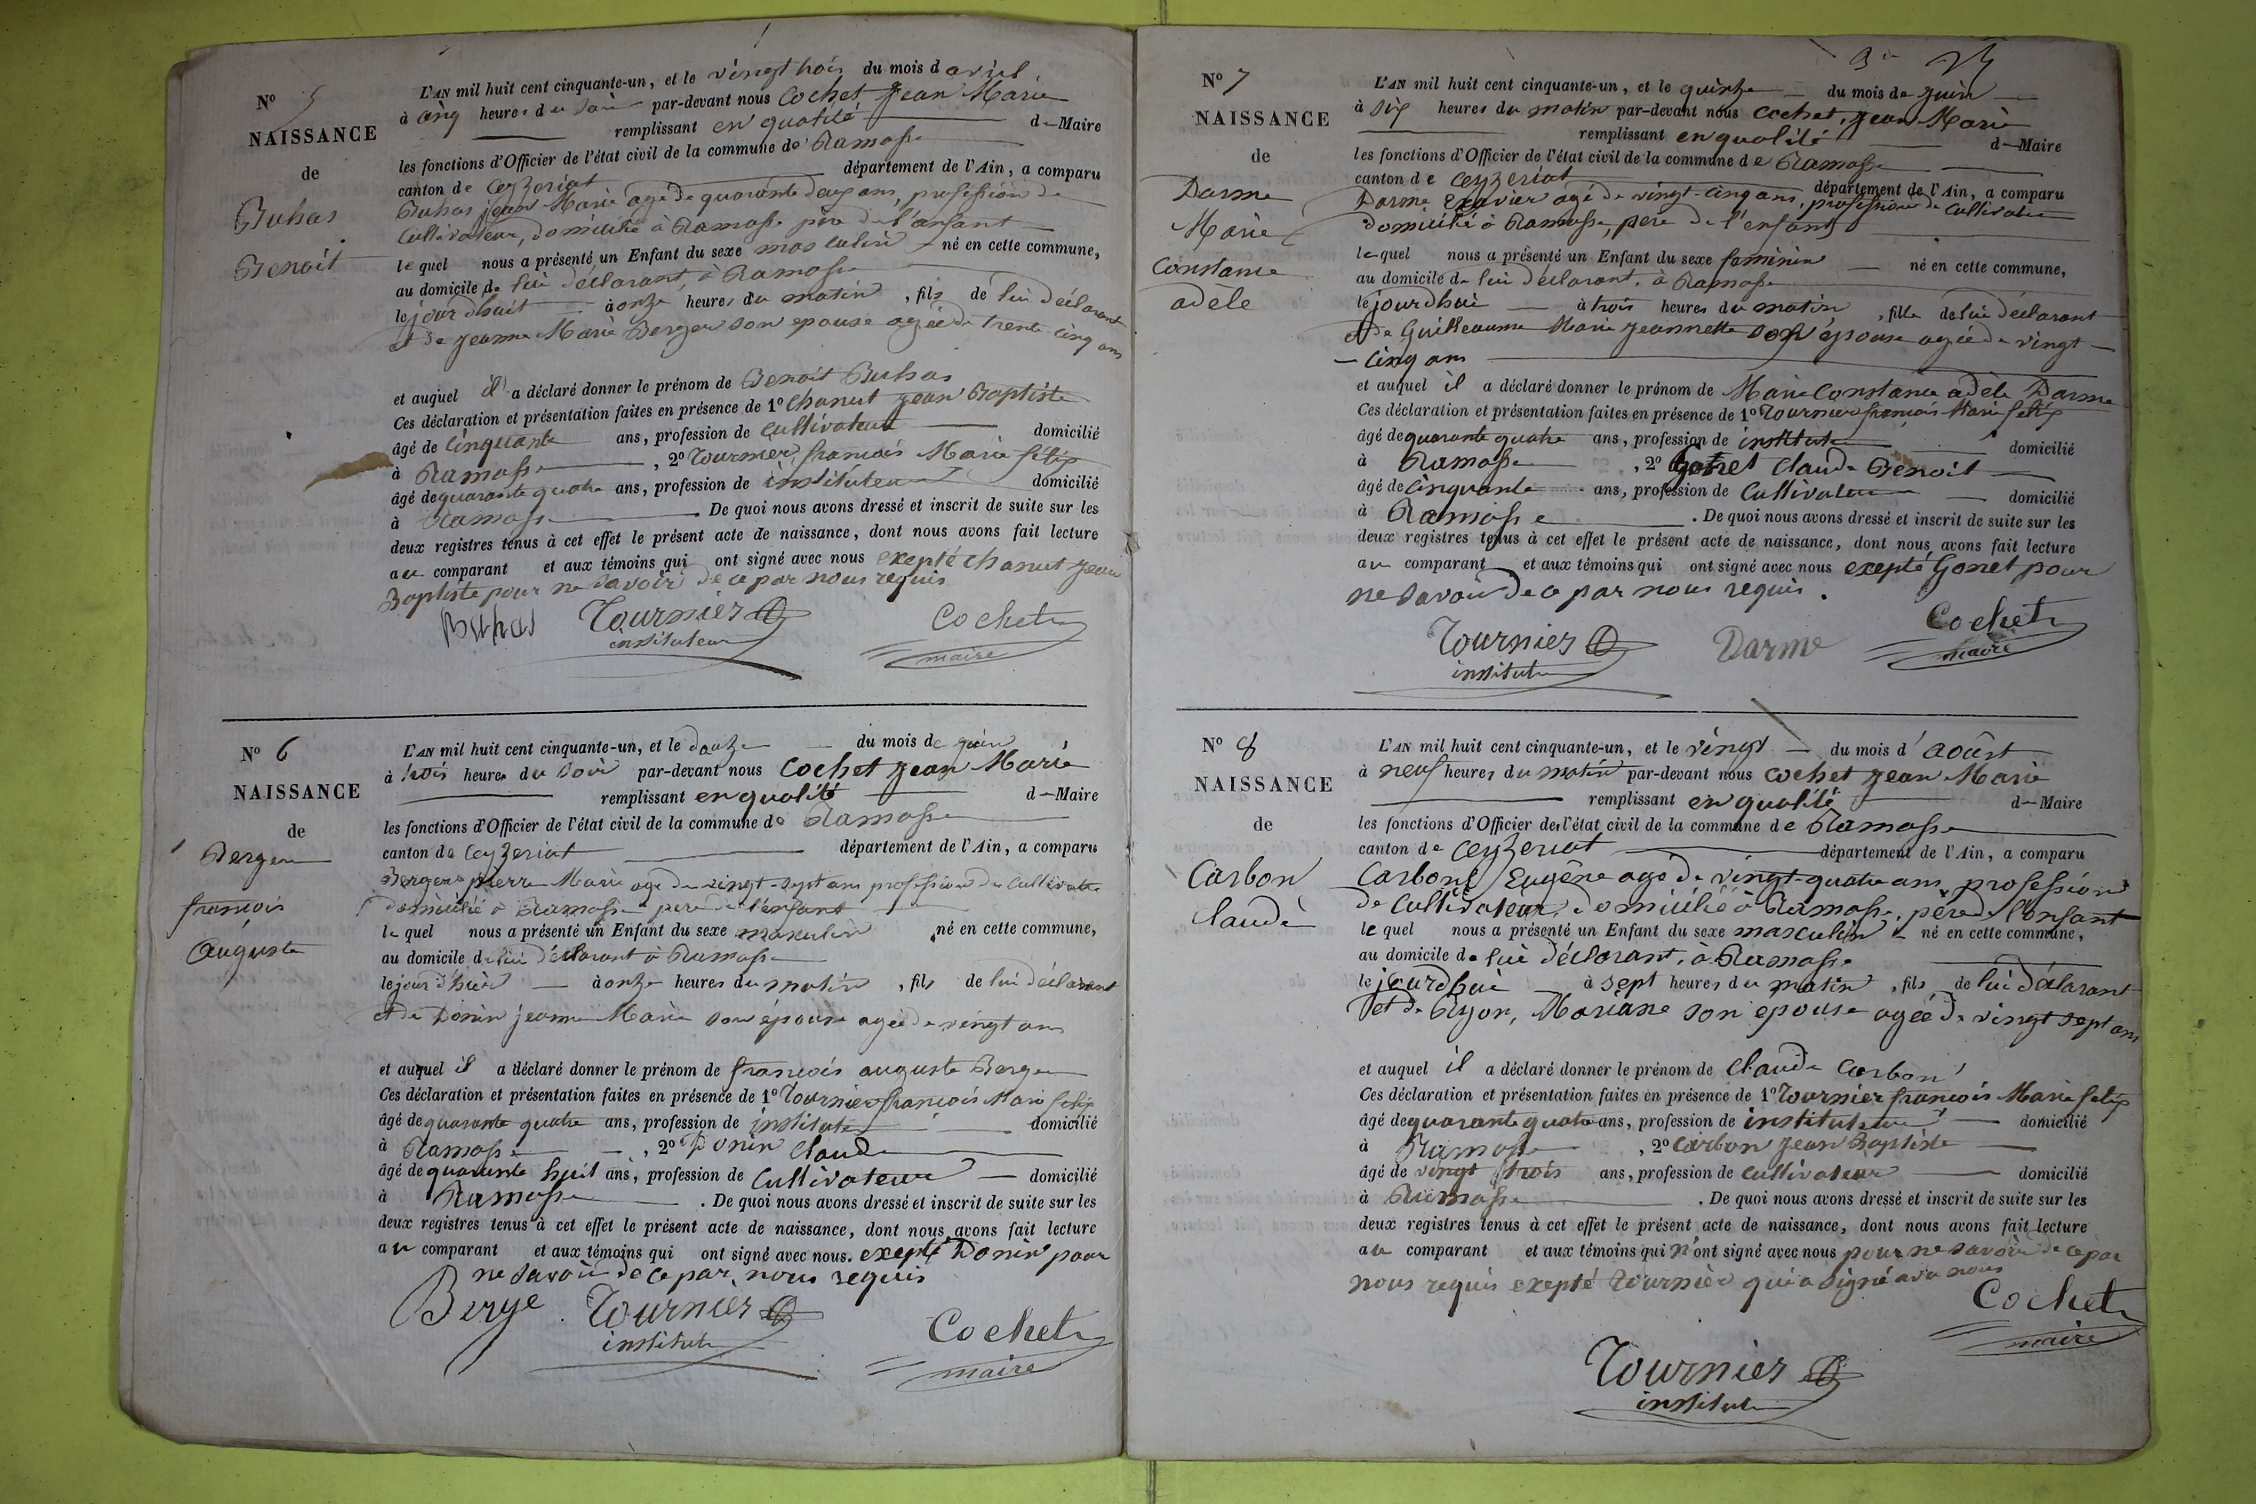 N° 5
NAISSANCE
de
Buhas
Benoit
L'AN mil huit cent cinquante-un, et le vingt trois du mois d avril
à cinq heures du soir par-devant nous Cochet Jean Marie
remplissant en qualité de Maire
les fonctions d'Officier de l'état civil de la commune de Ramasse
canton de Ceyzeriat département de l'Ain, a comparu
Buhas Jean Marie agé de quarante deux ans, profession de
Cultivateur, domicilié à Ramasse père de l'enfant
lequel nous a présenté un Enfant du sexe masculin né en cette commune,
au domicile de lui déclarant, à Ramasse
le jourd'huit à onze heures du matin, fils de lui déclarant
et de Jeanne Marie Berger son epouse agée de trente cinq ans
et auquel il a déclaré donner le prénom de Benoit Buhas
Ces déclaration et présentation faites en présence de 1° Chanut Jean Baptiste
âgé de cinquante ans, profession de Cultivateur domicilié
à Ramasse, 2° Tournier francois Marie félix
âgé de quarante quatre ans, profession de instituteur domicilié
à Ramasse. De quoi nous avons dressé et inscrit de suite sur les
deux registres tenus à cet effet le présent acte de naissance, dont nous avons fait lecture
au comparant et aux témoins qui ont signé avec nous exepté Chanut Jean
Baptiste pour ne savoir de ce par nous requis
Buhas Tournier Cochet
instituteur maire
N° 6
NAISSANCE
de
Berger
francois
Auguste
L'AN mil huit cent cinquante-un, et le douze du mois de juin
à trois heures du soir par-devant nous Cochet Jean Marie
remplissant en qualité de Maire
les fonctions d'Officier de l'état civil de la commune de Ramasse
canton de Ceyzeriat département de l'Ain, a comparu
Berger pierre Marie agé de vingt-sept ans profession de Cultivateur
domicilié à Ramasse pere de l'enfant
lequel nous a présenté un Enfant du sexe masculin né en cette commune,
au domicile de lui déclarant à Ramasse
le jour d'hier à onze heures du matin, fils de lui déclarant
et de Donin jeanne Marie son épouse agée de vingt ans
et auquel il a déclaré donner le prénom de francois auguste Berger
Ces déclaration et présentation faites en présence de 1° Tournier francois Marie félix
âgé de quarante quatre ans, profession de instituteur domicilié
à Ramasse, 2° Donin Claude
âgé de quarante huit ans, profession de Cultivateur domicilié
à Ramasse. De quoi nous avons dressé et inscrit de suite sur les
deux registres tenus à cet effet le présent acte de naissance, dont nous avons fait lecture
au comparant et aux témoins qui ont signé avec nous. exepté Donin pour
ne savoir de ce par nous requis
Berge Tournier Cochet
institut maire
N° 7
NAISSANCE
de
Darme
Marie
Constance
adèle
L'AN mil huit cent cinquante-un, et le quinze du mois de juin
à six heures du matin par-devant nous Cochet, Jean Marie
remplissant en qualité de Maire
les fonctions d'Officier de l'état civil de la commune de Ramasse
canton de Ceyzeriat département de l'Ain, a comparu
Darme Exavier agé de vingt-cinq ans, profession de Cultivateur
domicilié à Ramasse, pere de l'enfant
lequel nous a présenté un Enfant du sexe feminin né en cette commune,
au domicile de lui déclarant, à Ramasse
le jourdhui à trois heures du matin, fille de lui déclarant
et de Guilleaume Marie Jeannette son épouse agée de vingt
cinq ans
et auquel il a déclaré donner le prénom de Marie Constance adèle Darme
Ces déclaration et présentation faites en présence de 1° Tournier francois Marie félix
âgé de quarante quatre ans, profession de instituteur domicilié
à Ramasse, 2° Gonet Claude Benoit
âgé de cinquante ans, profession de Cultivateur domicilié
à Ramasse. De quoi nous avons dressé et inscrit de suite sur les
deux registres tenus à cet effet le présent acte de naissance, dont nous avons fait lecture
au comparant et aux témoins qui ont signé avec nous exepté Gonet pour
ne savoir de ce par nous requis.
Tournier Darme Cochet
institut maire
N° 8
NAISSANCE
de
Carbon
Claude
L'AN mil huit cent cinquante-un, et le vingt du mois d'août
à neuf heures du matin par-devant nous Cochet Jean Marie
remplissant en qualité de Maire
les fonctions d'Officier de l'état civil de la commune de Ramasse
canton de Ceyzeriat département de l'Ain, a comparu
Carbon Eugène agé de vingt-quatre ans, profession
de Cultivateur, domicilié à Ramasse, père de l'enfant
lequel nous a présenté un Enfant du sexe masculin né en cette commune,
au domicile de lui déclarant, à Ramasse
le jourdhui à sept heures du matin, fils de lui déclarant
et de Pyon, Mariane son epouse agée de vingt sept ans
et auquel il a déclaré donner le prénom de Claude Carbon
Ces déclaration et présentation faites en présence de 1° Tournier francois Marie félix
âgé de quarante quatre ans, profession de instituteur domicilié
à Ramasse, 2° Carbon Jean Baptiste
âgé de vingt trois ans, profession de Cultivateur domicilié
à Ramasse. De quoi nous avons dressé et inscrit de suite sur les
deux registres tenus à cet effet le présent acte de naissance, dont nous avons fait lecture
au comparant et aux témoins qui n'ont signé avec nous pour ne savoir de ce par
nous requis exepté Tournier qui a signé avec nous
Cochet
maire
Tournier
institut